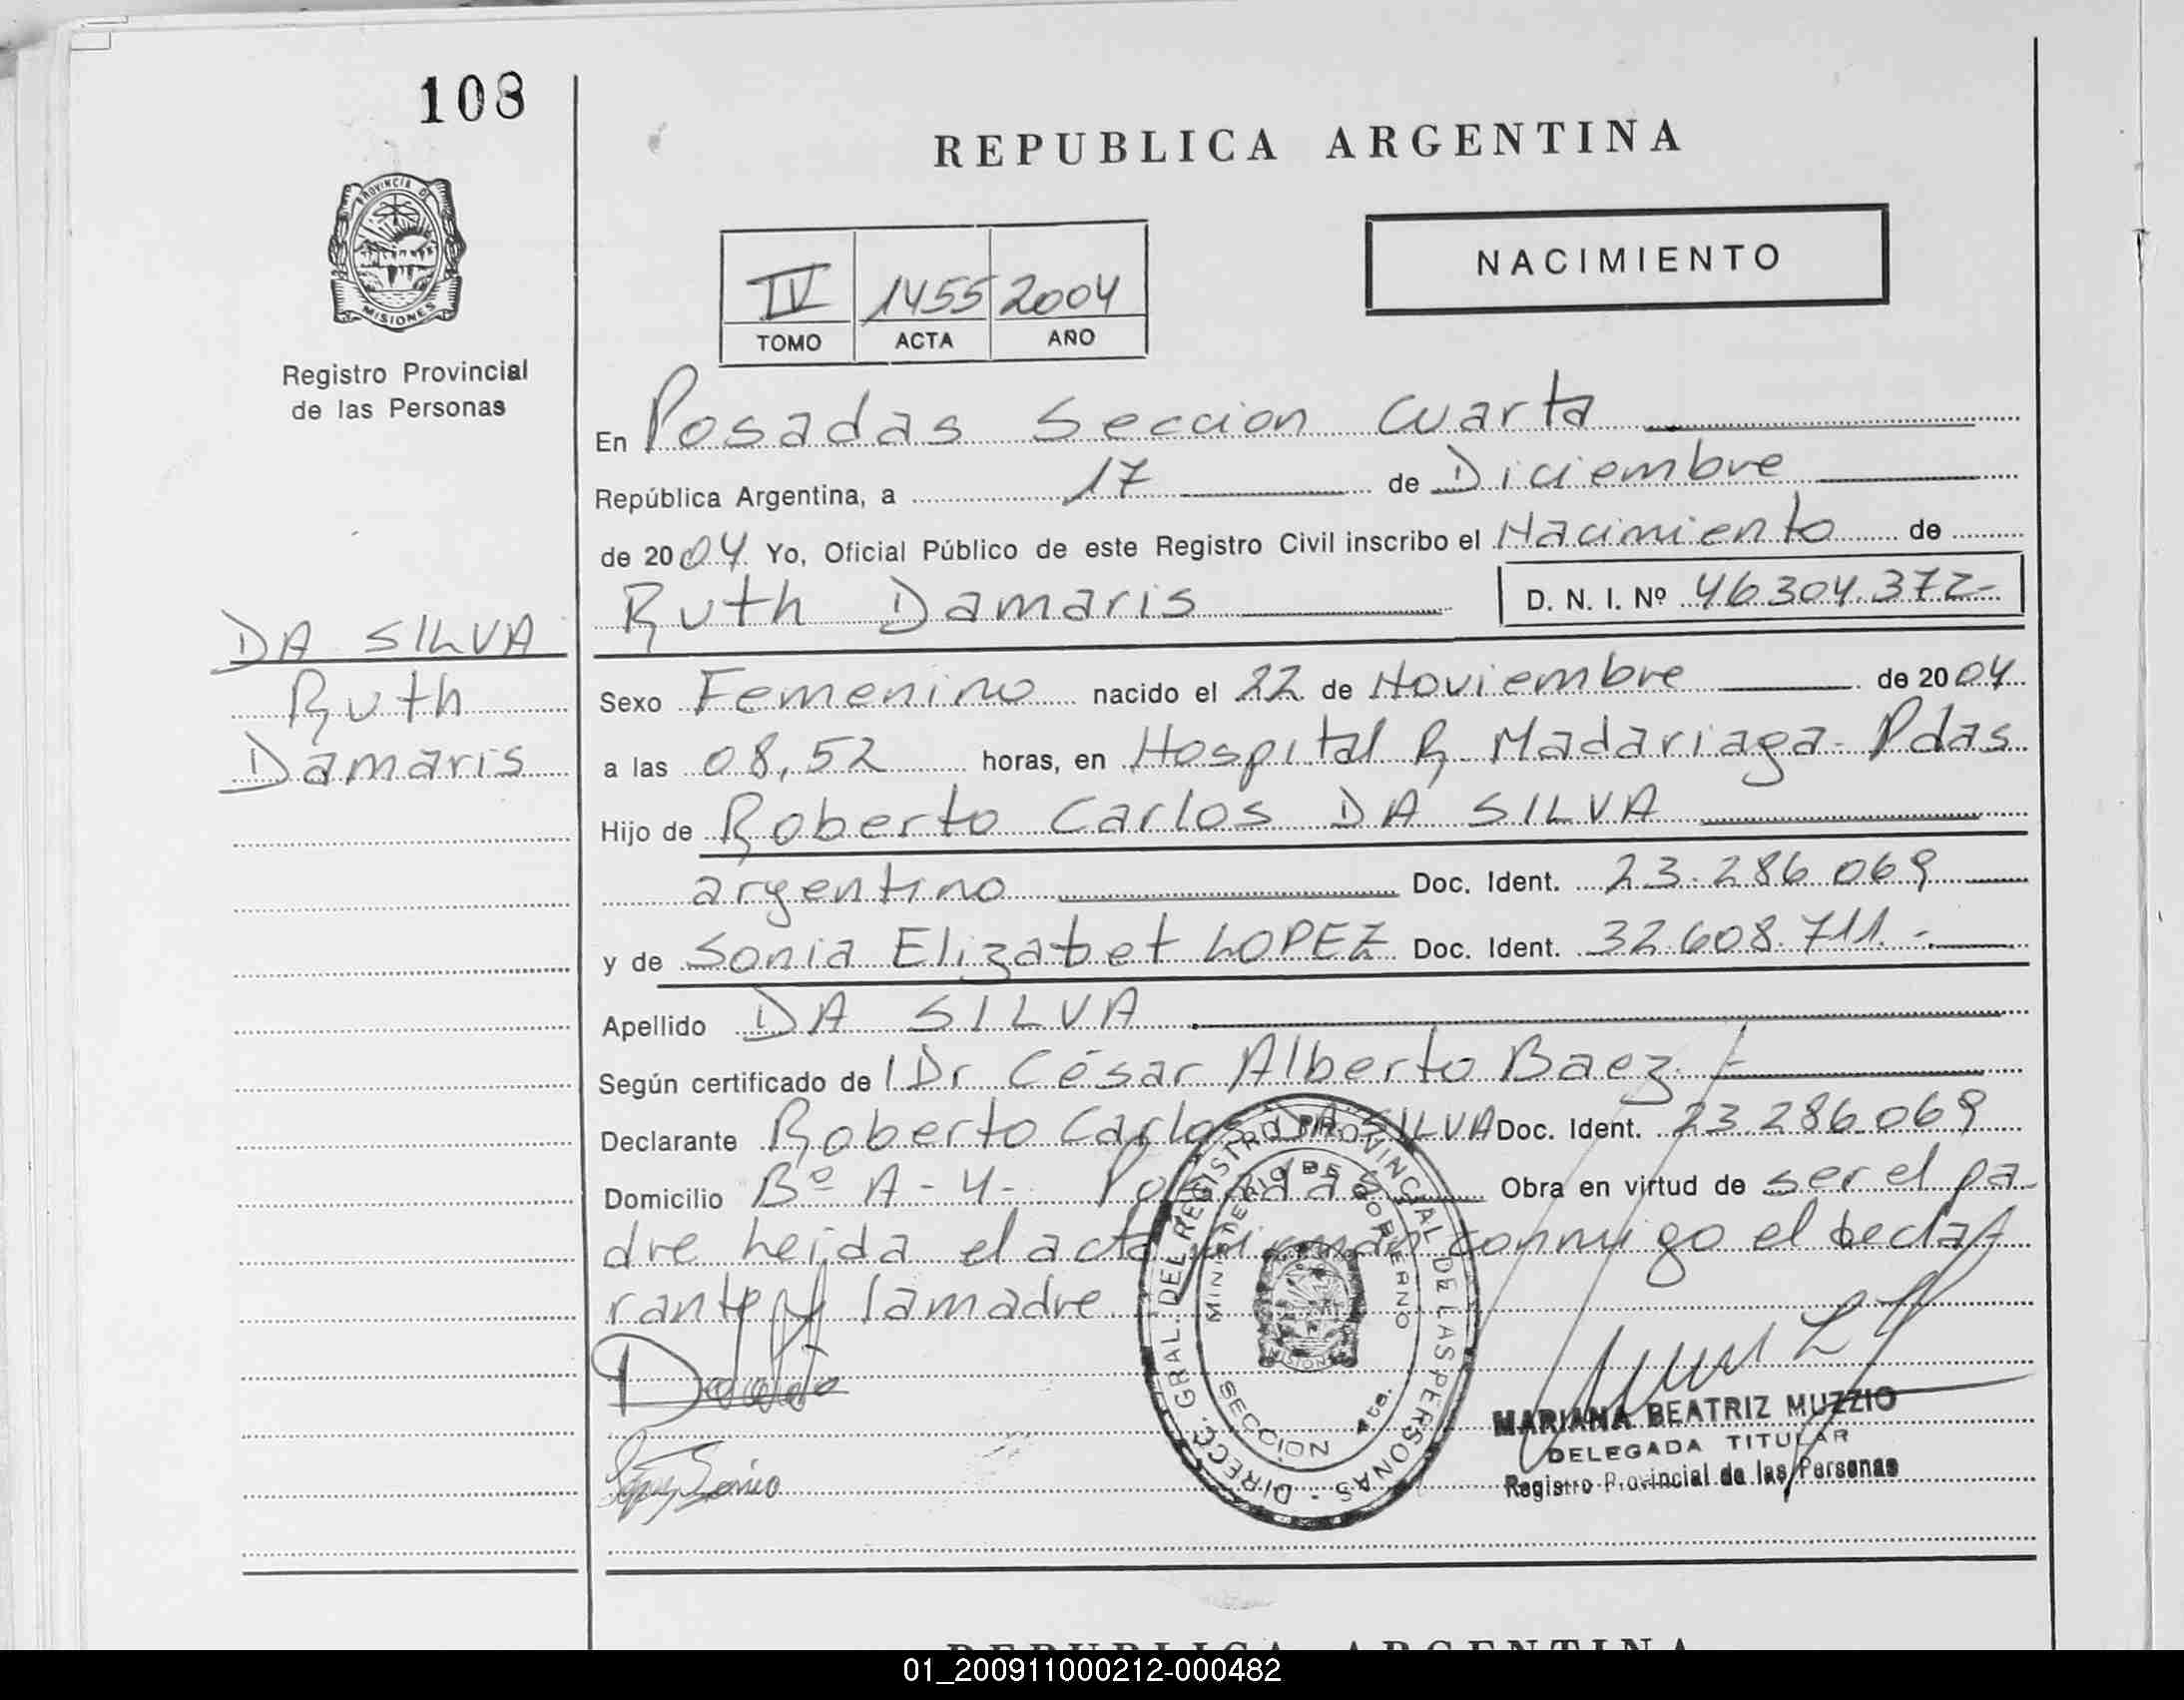 108
PROVINCIA DE
MISIONES
Registro Provincial
de las Personas
REPUBLICA ARGENTINA
NACIMIENTO
IV 1455 2004
TOMO ACTA AÑO
En Posadas Seccion Cuarta
República Argentina, a 17 de Diciembre
de 2004 Yo, Oficial Público de este Registro Civil inscribo el Nacimiento de
Ruth Damaris D. N. I. Nº 46.304.372-
DA SILVA
Ruth
Damaris
Sexo Femenino nacido el 22 de Noviembre de 2004
a las 08,52 horas, en Hospital R. Madariaga - Pdas
Hijo de Roberto Carlos DA SILVA
argentino Doc. Ident. 23.286.069
y de Sonia Elizabet LOPEZ Doc. Ident. 32.608.711.-
Apellido DA SILVA
Según certificado de l Dr César Alberto Baez.
Declarante Roberto Carlos DA SILVA Doc. Ident. 23.286.069
Domicilio Bº A-4- Posadas Obra en virtud de ser el pa-
dre leida el acta firman conmigo el decla-
rante y la madre.
DIRECC. GRAL. DEL REGISTRO PROVINCIAL DE LAS PERSONAS -
MINISTERIO DE GOBIERNO
MISIONES
SECCION 4ta.
MARIANA BEATRIZ MUZZIO
DELEGADA TITULAR
Registro Provincial de las Personas
REPUBLICA ARGENTINA
01_200911000212-000482